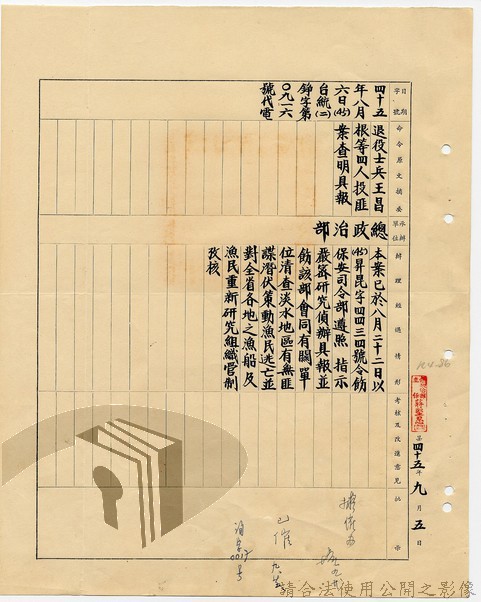 日期
字號
四十五
年八月
六日(45)
台統(二)
錚字第
〇九一六
號代電
命令原文摘要
退役士兵王昌
根等四人投匪
案查明具報
承辦
單位
總政治部
辦理經過情形
本案已於八月二十二日以
(45)昇昆字四四三四號令飭
保安司令部遵照 指示
嚴密研究偵辦具報並
飭該部會同有關單
位清查淡水地區有無匪
諜潛伏策動漁民逃亡並
對全省各地之漁船及
漁民重新研究組織管制
考核及改進意見
攷核
批示
已催 九
四十五年九月五日
請合法使用公開之影像